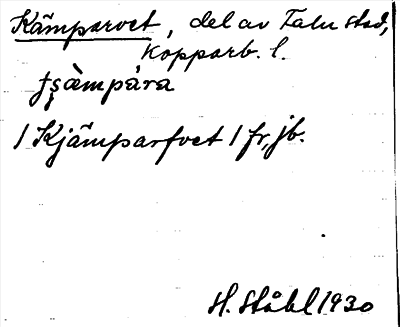 Kämparvet, del av Falu stad,
Kopparb. l.
tʂæ̀mpára
/ Kjämparfvet / fr, jb.
H. Ståhl 1930